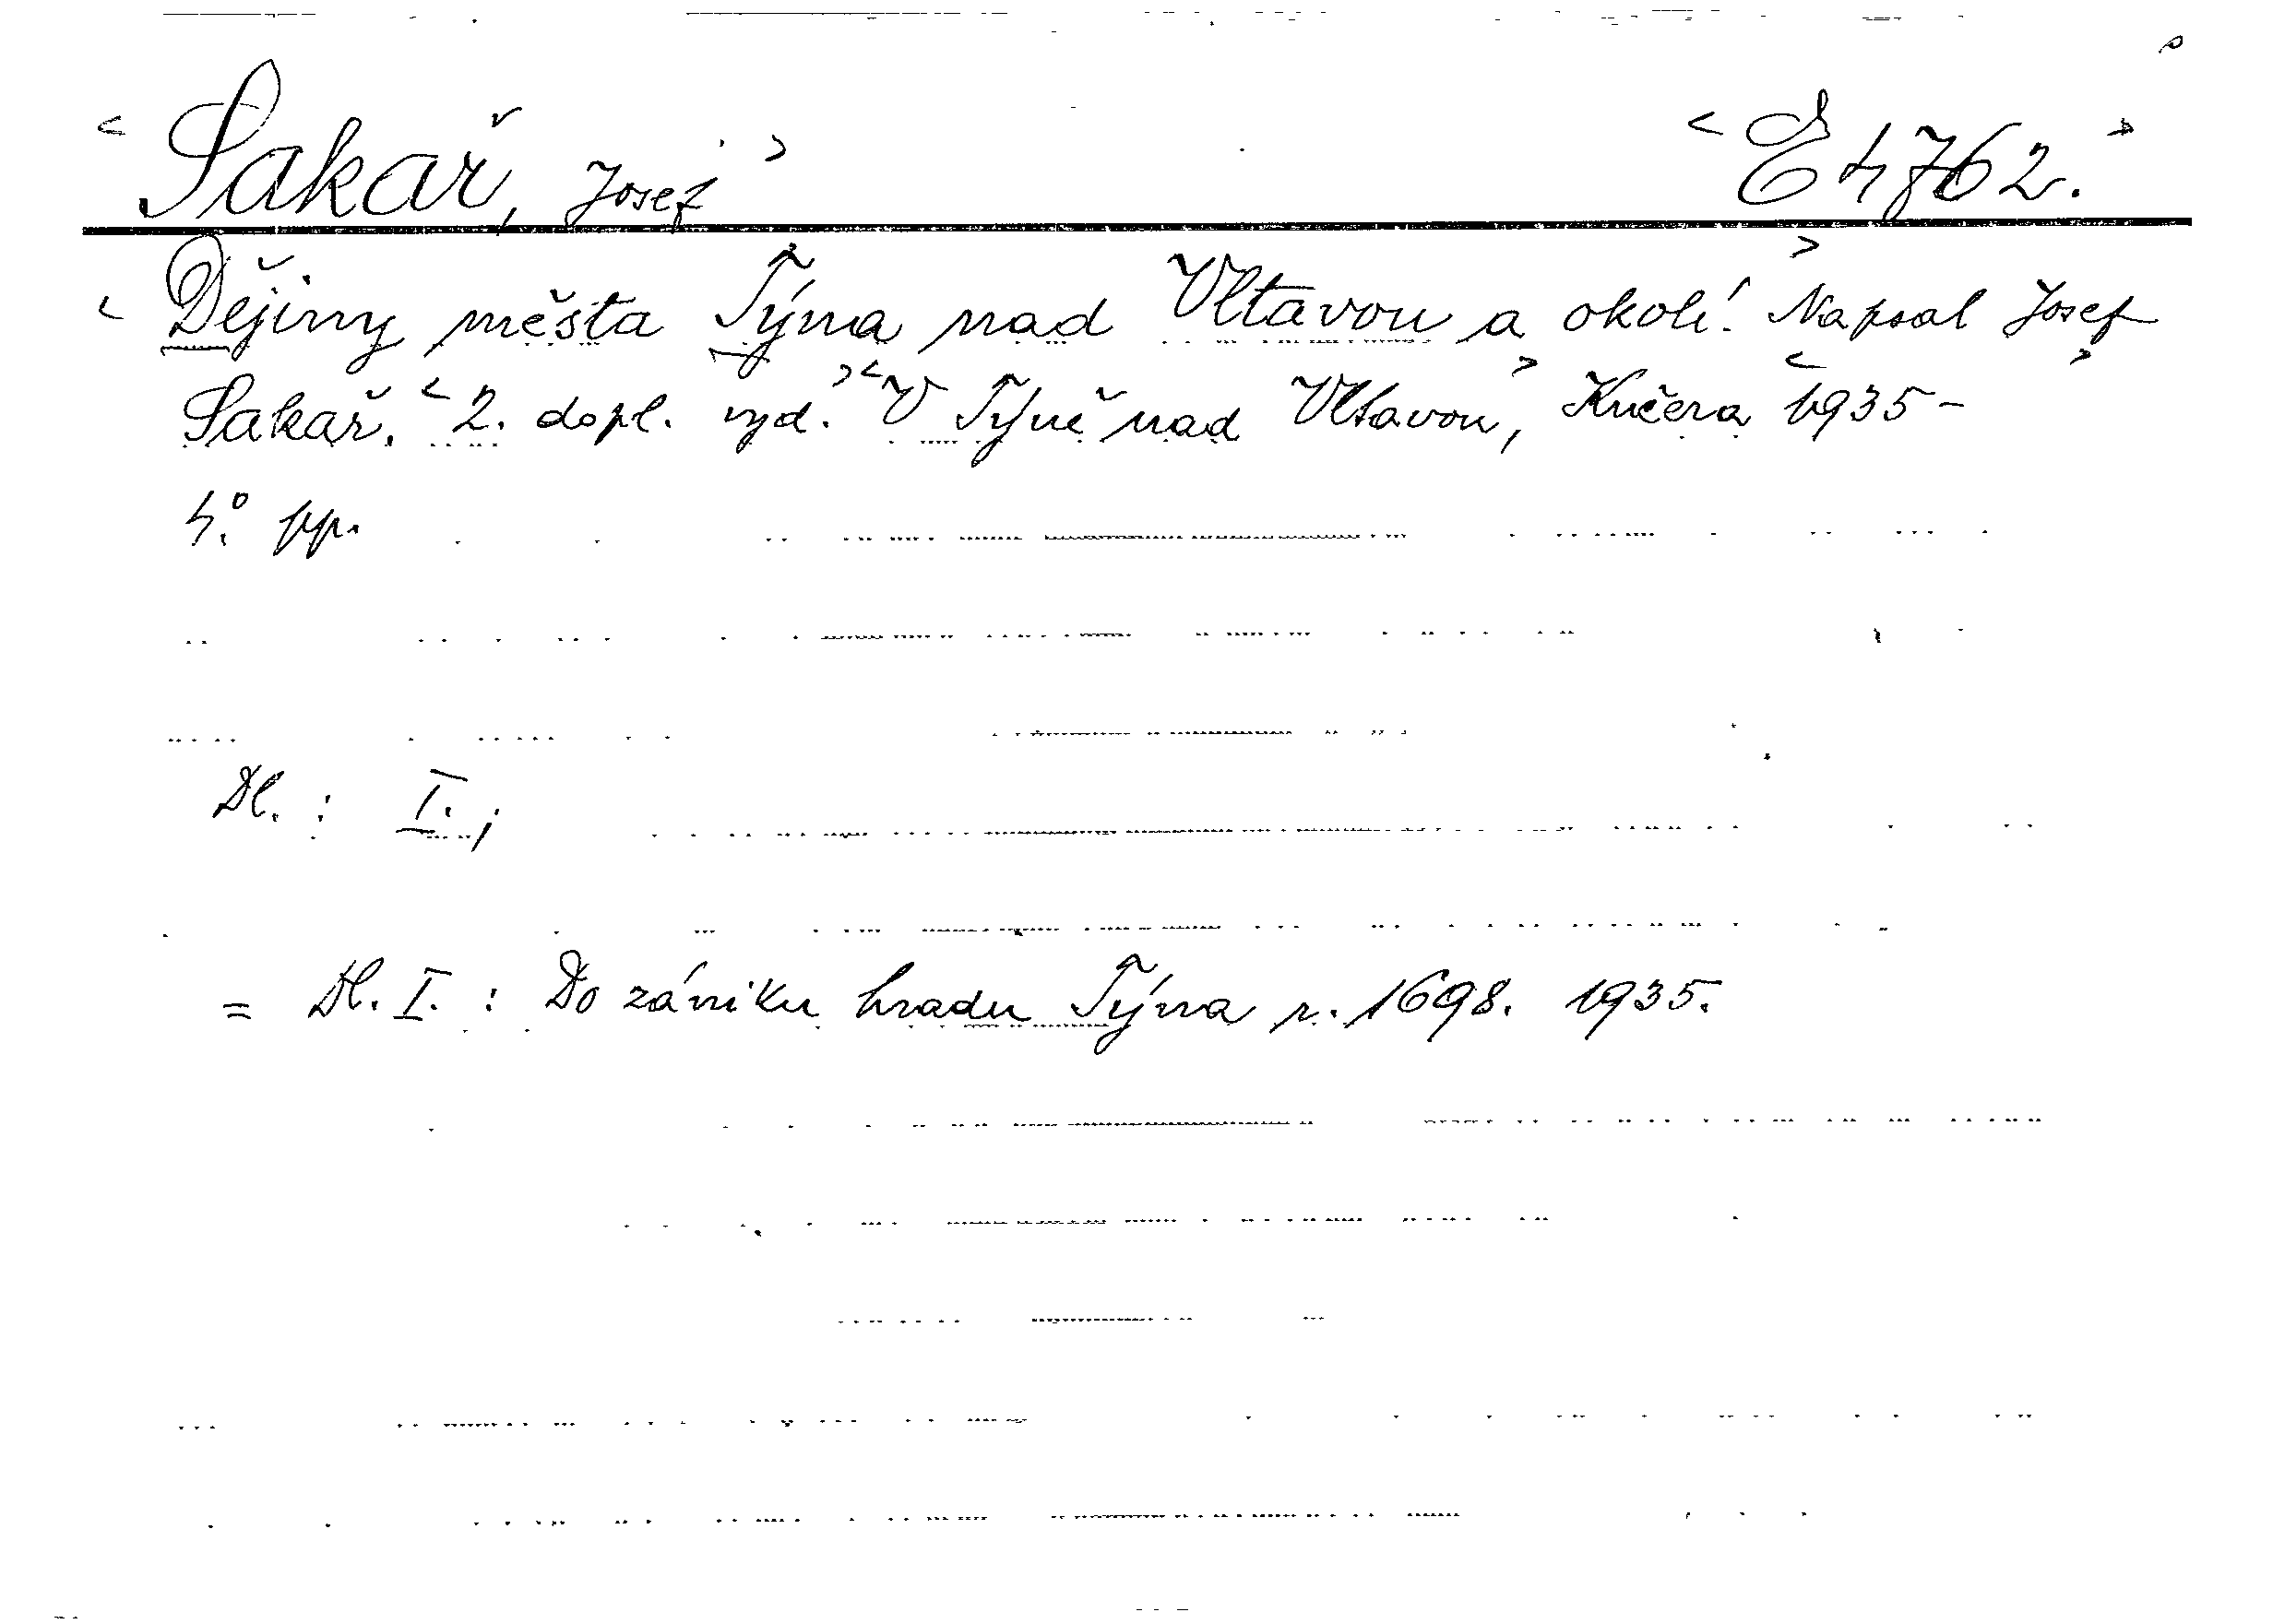 < Sakař, Josef > < E 4762. >
< Dějiny města Týna nad Vltavou a okolí. > Napsal Josef
Sakař. < 2. dopl. vyd. > < V Týně nad Vltavou, > Kučera < 1935 - >
4°. pp.
Dl. : I. ;
= Dl. I. : Do zániku hradu Týna r. 1698. 1935.